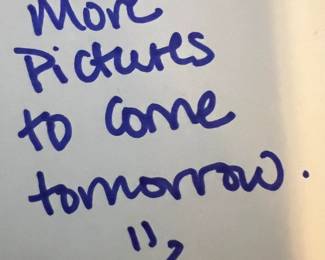 More
Pictures
to come
tomorrow.